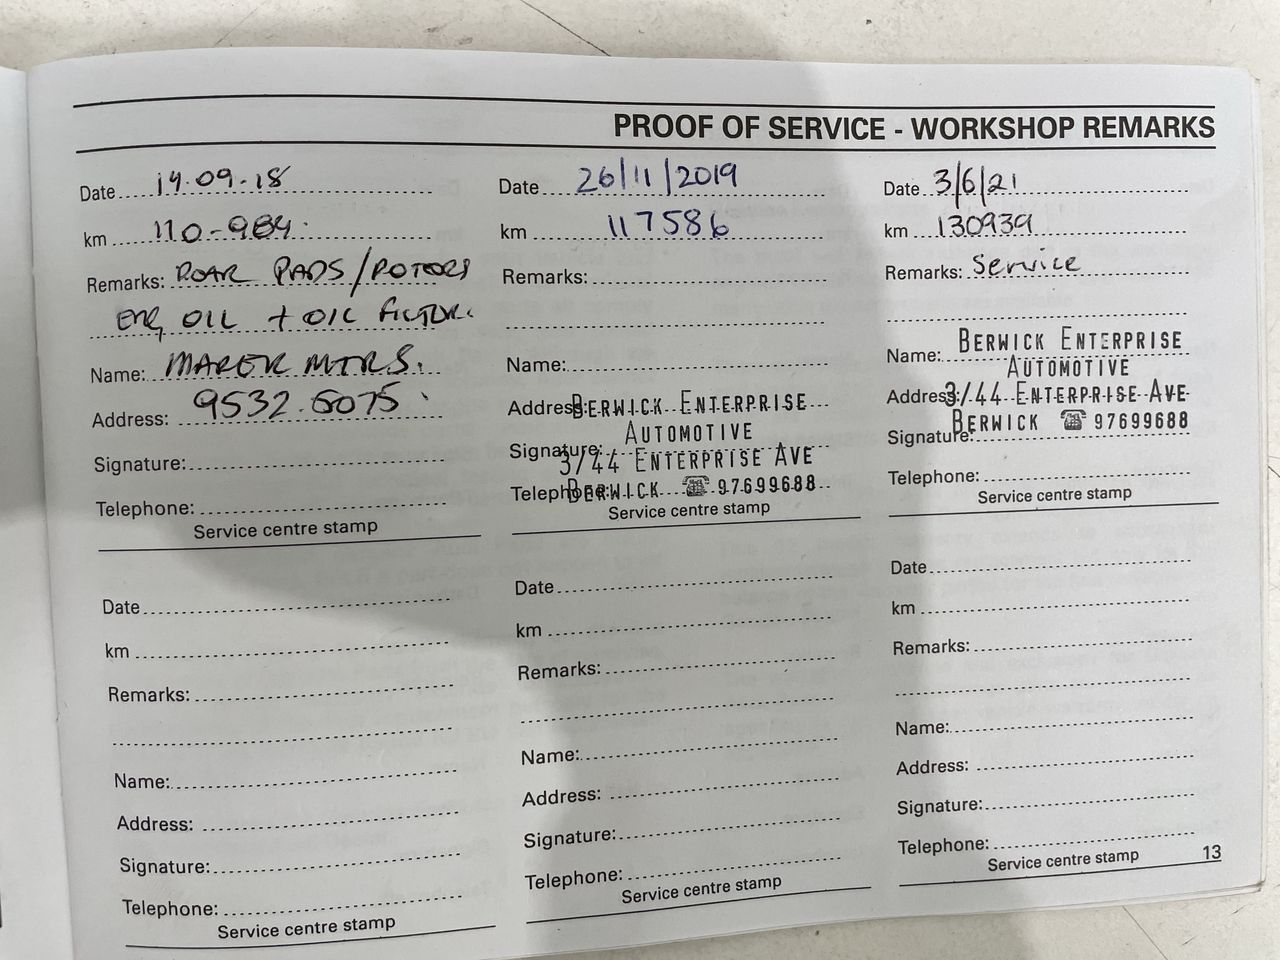 PROOF OF SERVICE - WORKSHOP REMARKS
Date 14.09.18
km 110-984.
Remarks: ROAR PADS/ROTORS
eng OIL + OIL FILTER.
Name: MTRS.
Address: 9532.6075
Signature:
Telephone:
Service centre stamp
Date 26/11/2019
km 117586
Remarks:
Name:
Address: BERWICK ENTERPRISE
AUTOMOTIVE
Signature:
3/44 ENTERPRISE AVE
Telephone: BERWICK ☎ 97699688
Service centre stamp
Date 3/6/21
km 130939
Remarks: Service
Name: BERWICK ENTERPRISE
AUTOMOTIVE
Address: 3/44 ENTERPRISE AVE
BERWICK ☎ 97699688
Signature:
Telephone:
Service centre stamp
Date
km
Remarks:
Name:
Address:
Signature:
Telephone:
Service centre stamp
Date
km
Remarks:
Name:
Address:
Signature:
Telephone:
Service centre stamp
Date
km
Remarks:
Name:
Address:
Signature:
Telephone:
Service centre stamp
13